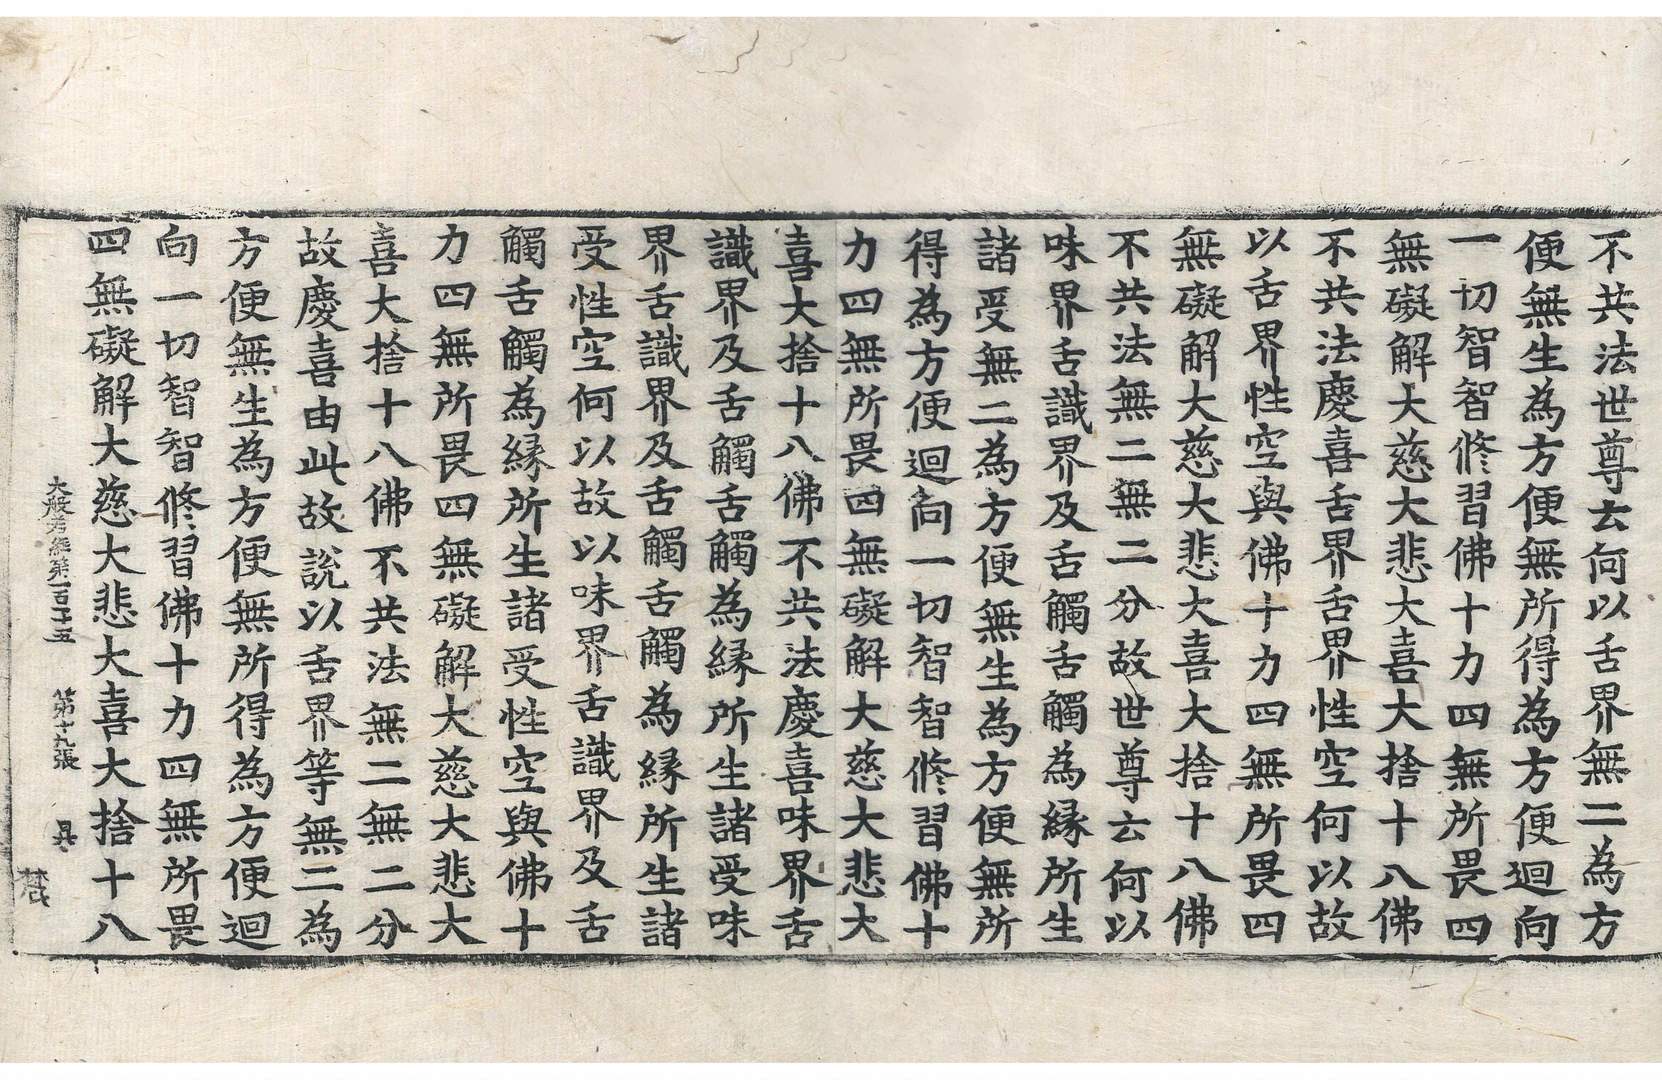 不共法世尊云何以舌界無二為方
便無生為方便無所得為方便迴向
一切智智修習佛十力四無所畏四
無礙解大慈大悲大喜大捨十八佛
不共法慶喜舌界舌界性空何以故
以舌界性空與佛十力四無所畏四
無礙解大慈大悲大喜大捨十八佛
不共法無二無二分故世尊云何以
味界舌識界及舌觸舌觸為緣所生
諸受無二為方便無生為方便無所
得為方便迴向一切智智修習佛十
力四無所畏四無礙解大慈大悲大
喜大捨十八佛不共法慶喜味界舌
識界及舌觸舌觸為緣所生諸受味
界舌識界及舌觸舌觸為緣所生諸
受性空何以故以味界舌識界及舌
觸舌觸為緣所生諸受性空與佛十
力四無所畏四無礙解大慈大悲大
喜大捨十八佛不共法無二無二分
故慶喜由此故說以舌界等無二為
方便無生為方便無所得為方便迴
向一切智智修習佛十力四無所畏
四無礙解大慈大悲大喜大捨十八
大般若經第一百一十五 第十九張 昃